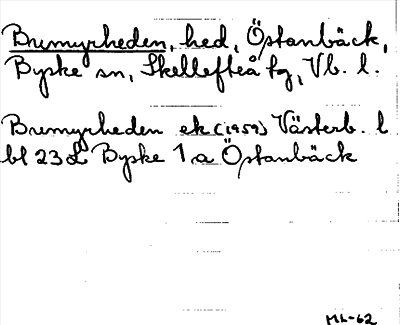 Bremyrheden, hed, Östanbäck,
Byske sn, Skellefteå tg, Vb. l.
Bremyrheden ek (1959) Västerb. l
bl 23 d Byske 1 a Östanbäck
ML-62